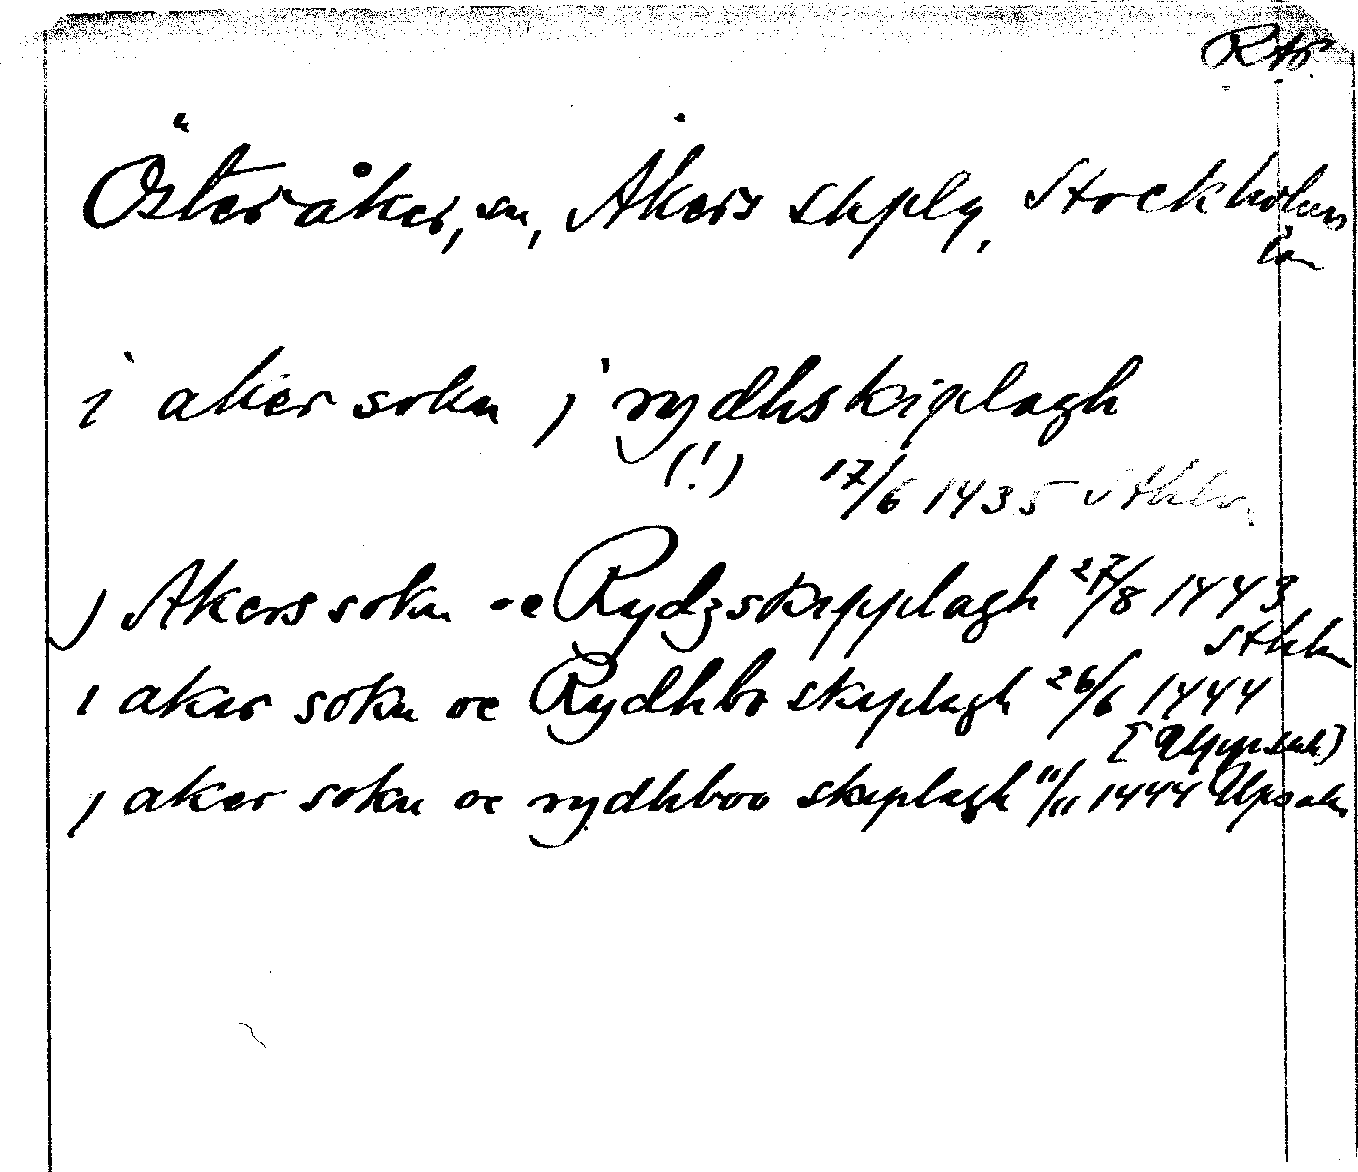 Österåker, sn, Åkers skplg, Stockholms
län
i aker sokn j rydhskiplagh
(!) 17/6 1435 Sthlm
j Akers sokn oc Rydzskipplagh 27/8 1443
Sthlm
i aker sokn oc Rydhbo skiplagh 26/6 1444
[Uppsala]
j aker sokn oc rydhboo skiplagh 11/11 1444 Upsala